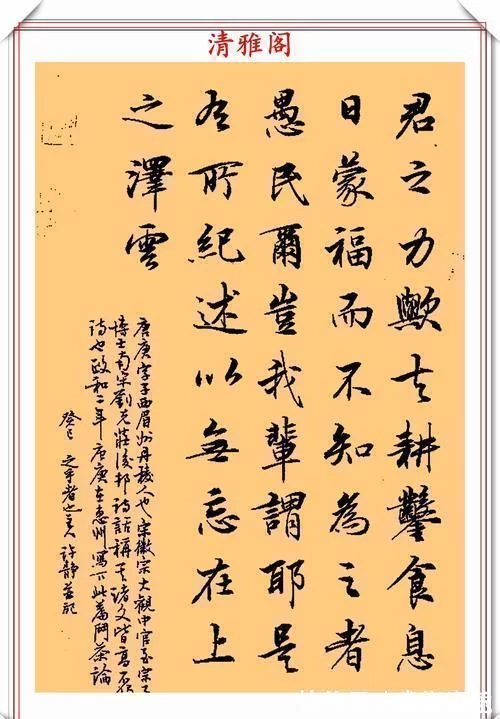 清雅阁
君之力歟夫耕鑿食息
日蒙福而不知為之者
愚民爾豈我輩謂耶是
有所紀述以無忘在上
之澤雲
唐庚字子西眉州丹稜人也宋徽宗大觀中官至宗子
博士南宋劉克莊後邨詩話稱其諸文皆高不獨
詩也政和二年唐庚在惠州寫下此篇鬥茶論
癸巳之乎者也主人許靜並記